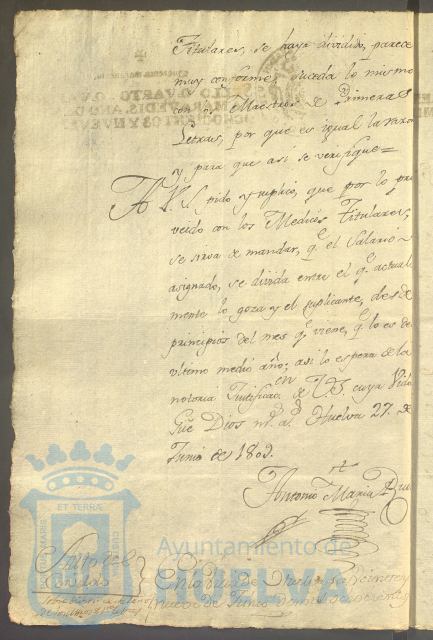 Titulares, se haya dividido, parece
muy conforme, suceda lo mismo
con los Maestros de Primeras
Letras, por que es igual la razon
y para que asi se verifique=
A V.S. pido y suplico, que por lo pro
veido con los Medicos Titulares,
se sirva de mandar, q.e el Salario
asignado, se divida entre el q.e actual
mente lo goza y el suplicante, desde
principios del mes q.e viene, q.e lo es del
ultimo medio año; asi lo espera de la
notoria Justificac.on de V.S. cuya Vida
Gue Dios m.s a.s Huelva 27. de
Junio de 1809.
Antonio Maria
Auto
En la Villa de Huelva en veinte y
nueve de Junio de mil ochocientos
SELLO QUARTO
Ayuntamiento de
HUELVA